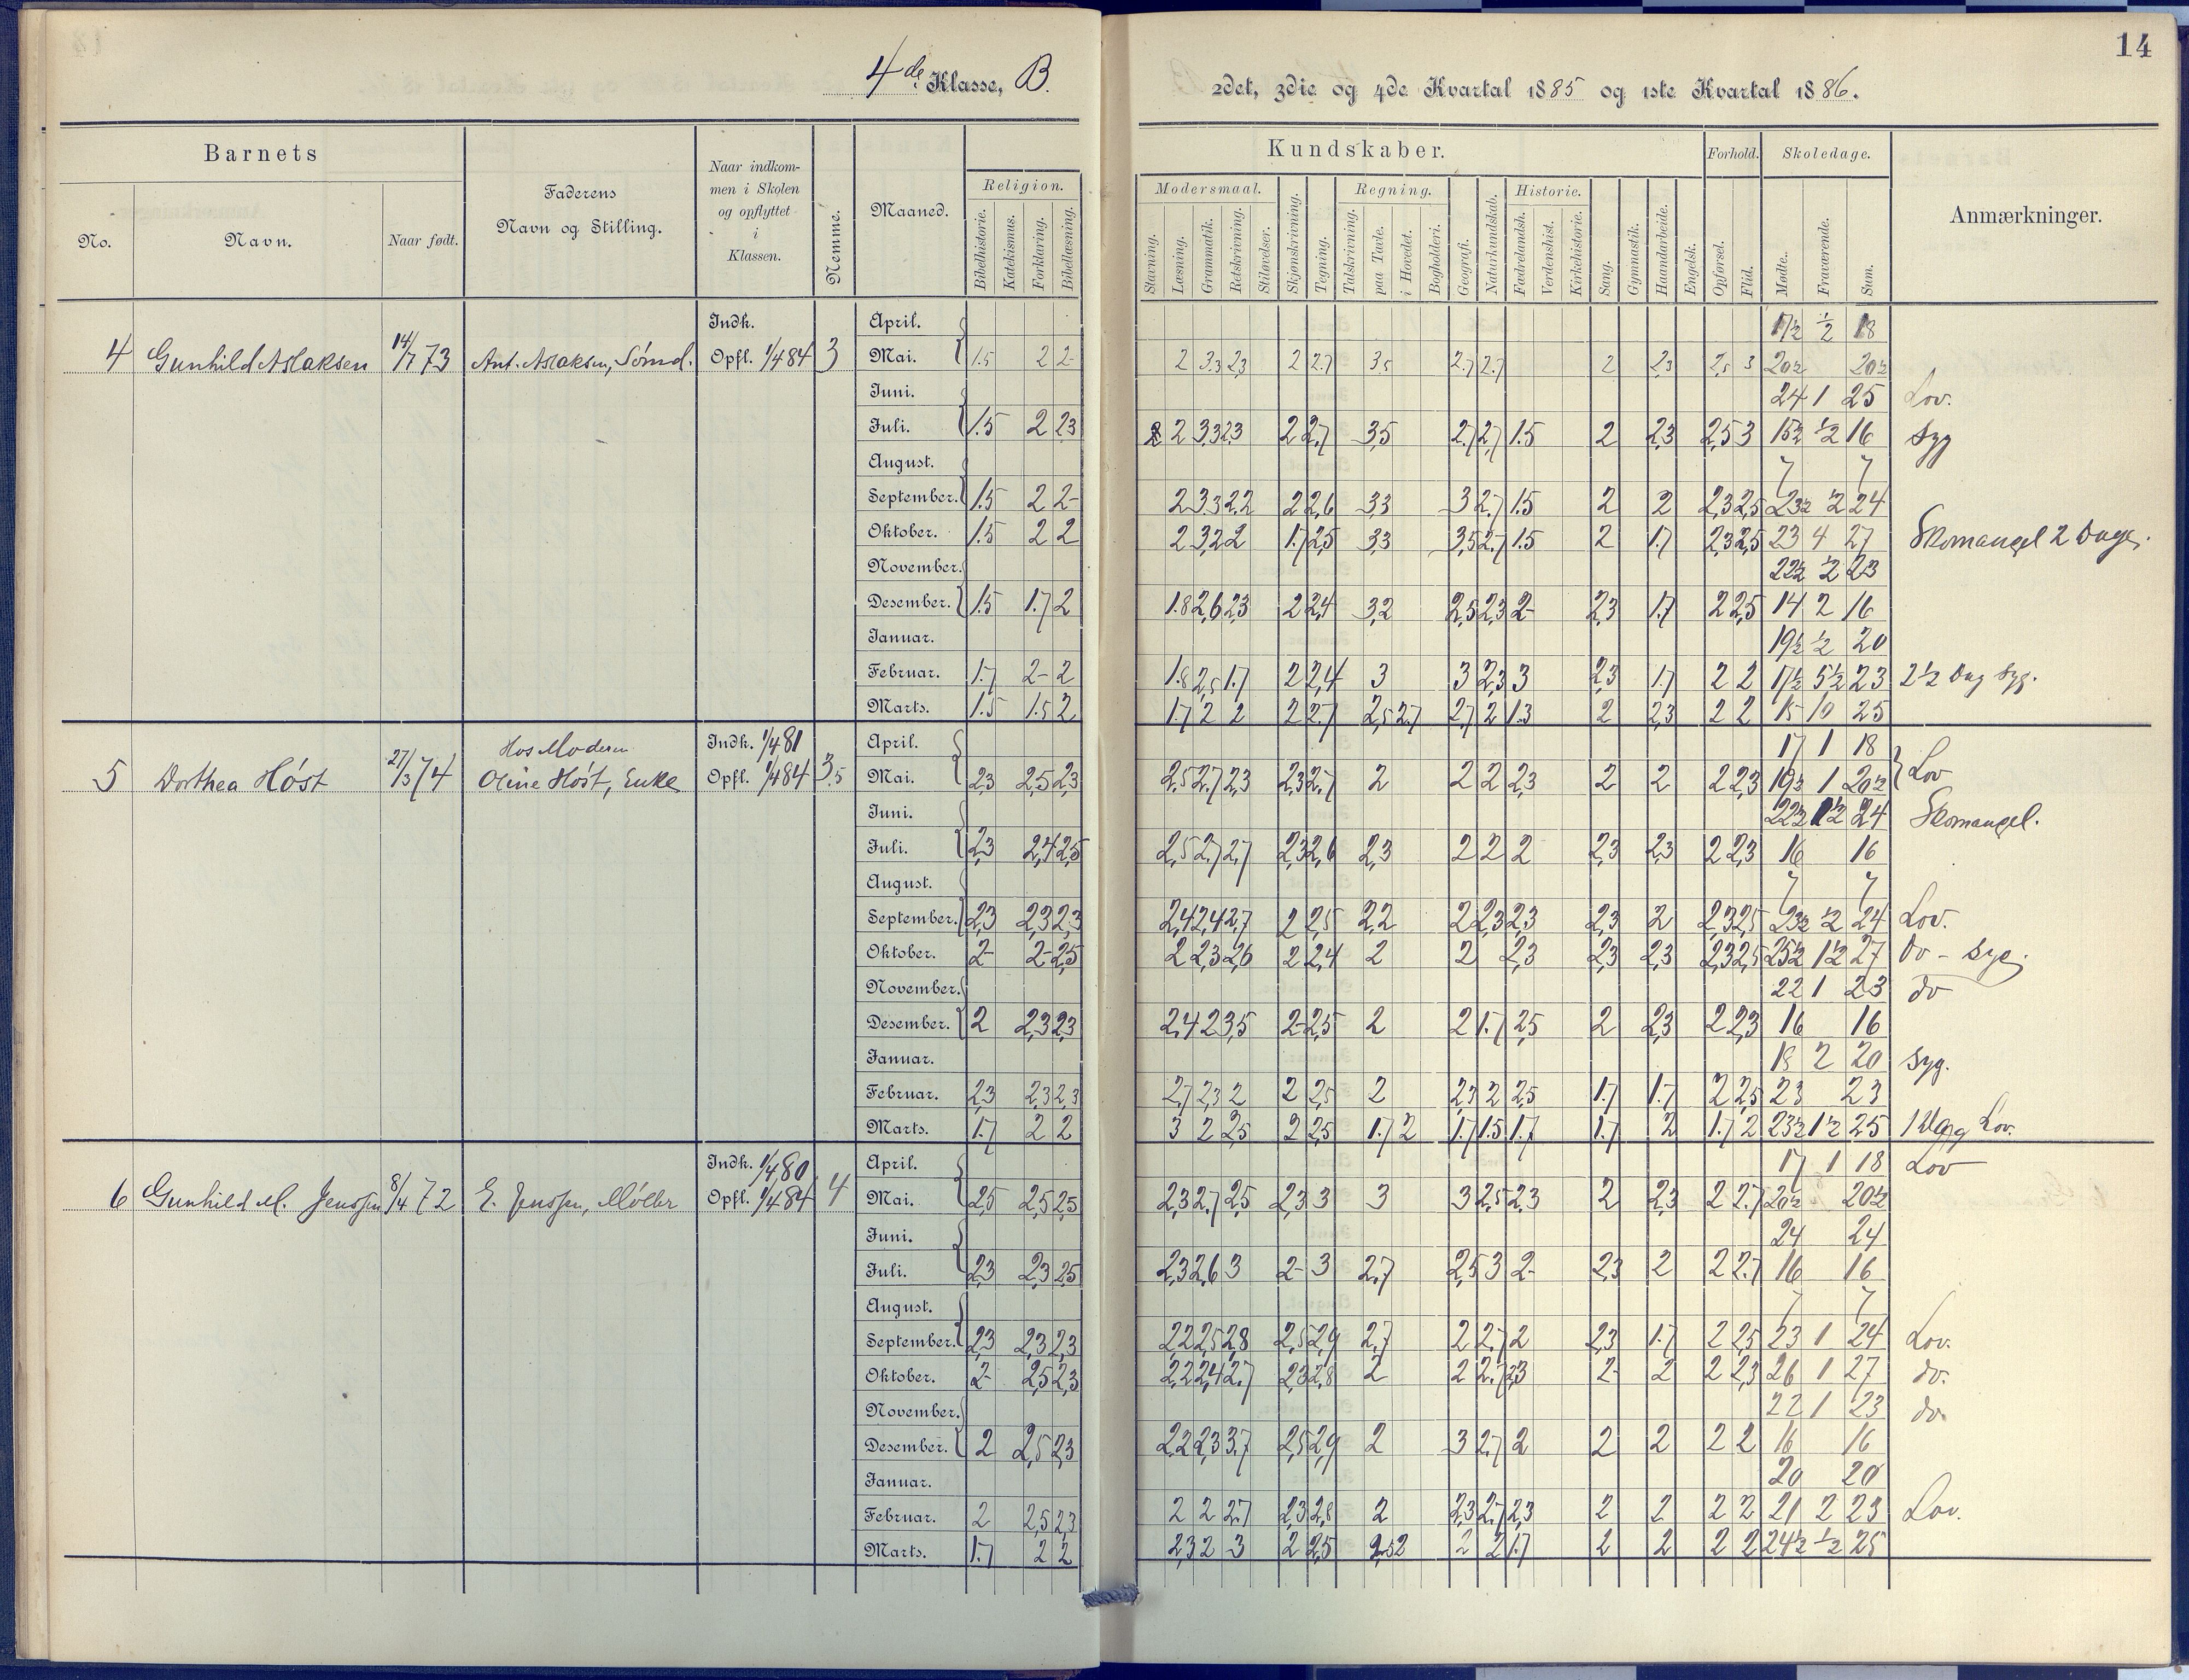 14
4de Klasse, B.
2det, 3die og 4de Kvartal 1885 og 1ste Kvartal 1886.
Barnets
Faderens Navn og Stilling.
Naar indkommen i Skolen og opflyttet i Klassen.
Nemme.
Maaned.
Kundskaber.
Forhold.
Skoledage.
Anmærkninger.
No.
Navn.
Naar født.
Religion.
Bibelhistorie. Katekismus. Forklaring. Bibellæsning.
Modersmaal.
Stavning. Læsning. Grammatik. Retskrivning. Stiløvelser.
Skjønskrivning. Tegning.
Regning.
Talskrivning. paa Tavle. i Hovedet.
Bogholderi. Geografi. Naturkundskab.
Historie.
Fædrelandsh. Verdenshist. Kirkehistorie.
Sang. Gymnastik. Haandarbeide. Engelsk.
Opførsel. Flid.
Mødte. Fraværende. Sum.
4 Gunhild Aslaksen 14/7 73 Ant. Aslaksen, Sømd. Indk. Opfl. 1/4 84 3
April. 17½ ½ 18
Mai. 1.5 2 2- 2 3.3 2,3 2 2.7 3,5 2.7 2.7 2 2,3 2,5 3 20½ 20½
Juni. 24 1 25 Lov.
Juli. 1.5 2 2,3 2 3,3 2,3 2 2,7 3,5 2.7 2,7 1.5 2 2,3 2,5 3 15½ ½ 16 Syg
August. 7 7
September. 1.5 2 2- 2 3.3 2.2 2 2,6 3,3 3 2.7 1.5 2 2 2,3 2,5 23½ ½ 24
Oktober. 1.5 2 2 2 3,2 2 1.7 2,5 3,3 3,5 2.7 1.5 2 1.7 2,3 2,5 23 4 27 Skomangel 2 Dage.
November. 22½ ½ 23
Desember. 1.5 1.7 2 1.8 2,6 2,3 2 2,4 3,2 2,5 2,3 2- 2,3 1.7 2 2,5 14 2 16
Januar. 19½ ½ 20
Februar. 1.7 2- 2 1.8 2,5 1.7 2 2,4 3 3 2,3 3 2,3 1.7 2 2 17½ 5½ 23 2½ Dag Syg.
Marts. 1.5 1.5 2 1.7 2 2 2 2.7 2,5 2.7 2,7 2 1.3 2 2,3 2 2 15 10 25
5 Dorthea Høst 27/3 74 Hos Moderen Oline Høst, Enke Indk. 1/4 81 Opfl. 1/4 84 3.5
April. 17 1 18
Mai. 2,3 2,5 2,3 2,5 2.7 2,3 2,3 2.7 2 2 2 2,3 2 2 2 2,3 19½ 1 20½ Lov
Juni. 22½ 1½ 24 Skomangel.
Juli. 2,3 2,4 2,5 2,5 2.7 2,7 2,3 2,6 2,3 2 2 2 2,3 2,3 2 2,3 16 16
August. 7 7
September. 2,3 2,3 2,3 2,4 2,4 2,7 2 2,5 2,2 2 2,3 2,3 2,3 2 2,3 2,5 23½ ½ 24 Lov.
Oktober. 2- 2- 2,5 2 2,3 2,6 2 2,4 2 2 2,3 2,3 2,3 2,3 2,5 25½ 1½ 27 Do - Syg.
November. 22 1 23 do
Desember. 2 2,3 2,3 2,4 2 3,5 2- 2,5 2 2 1.7 2,5 2 2,3 2 2,3 16 16
Januar. 18 2 20 Syg.
Februar. 2,3 2,3 2,3 2,7 2,3 2 2 2,5 2 2,3 2 2,5 1.7 1.7 2 2,5 23 23
Marts. 1.7 2 2 3 2 2,5 2 2,5 1.7 2 1.7 1.5 1.7 1.7 2 1.7 2 23½ 1½ 25 1 Dag Lov.
6 Gunhild M. Jenssen 8/4 72 E. Jenssen, Møller Indk. 1/4 80 Opfl. 1/4 84 4
April. 17 1 18 Lov
Mai. 2,5 2,5 2,5 2,3 2.7 2,5 2,3 3 3 3 2,5 2,3 2 2,3 2 2.7 20½ 20½
Juni. 24 24
Juli. 2,3 2,3 2,5 2,3 2,6 3 2- 3 2,7 2,5 3 2- 2,3 2 2 2.7 16 16
August. 7 7
September. 2,3 2,3 2,3 2,2 2,5 2,8 2,5 2,9 2,7 2 2.7 2 2,3 1.7 2 2,5 23 1 24 Lov.
Oktober. 2- 2,5 2,3 2,2 2,4 2.7 2,3 2,8 2 2 2.7 2,3 2- 2 2 2,3 26 1 27 do.
November. 22 1 23 do
Desember. 2 2,5 2,3 2,2 2,3 3,7 2,5 2,9 2 3 2.7 2 2 2 2 2 16 16
Januar. 20 20
Februar. 2 2,5 2,3 2 2 2.7 2,3 2,8 2 2,3 2.7 2,3 2 2 2 2 21 2 23 Lov.
Marts. 1.7 2 2 2,3 2 3 2 2,5 2 2 2 1.7 2 2 2 2 24½ ½ 25